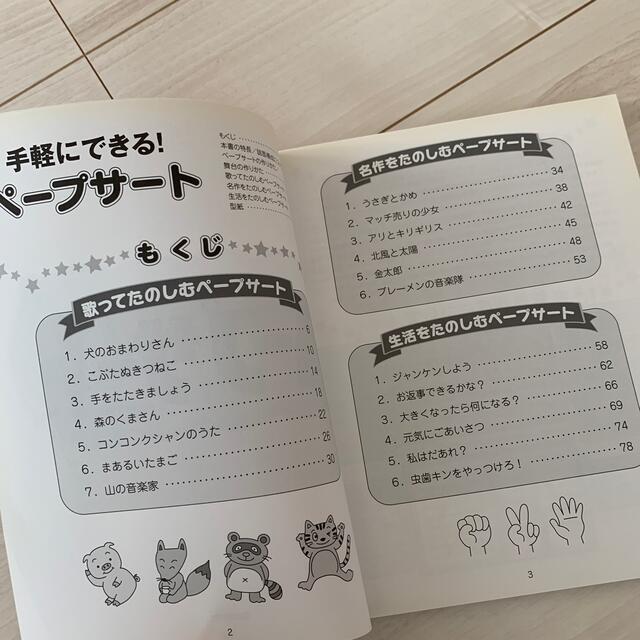 手軽にできる!
ペープサート
もくじ
もくじ
本書の特長／
ペープサートの作りかた
舞台の作りかた
歌ってたのしむペープサー
名作をたのしむペープサー
生活をたのしむペープサー
型紙
歌ってたのしむペープサート
1. 犬のおまわりさん 6
2. こぶたぬきつねこ 10
3. 手をたたきましょう 14
4. 森のくまさん 18
5. コンコンクシャンのうた 22
6. まあるいたまご 26
7. 山の音楽家 30
2
名作をたのしむペープサート
1. うさぎとかめ 34
2. マッチ売りの少女 38
3. アリとキリギリス 42
4. 北風と太陽 45
5. 金太郎 48
6. ブレーメンの音楽隊 53
生活をたのしむペープサート
1. ジャンケンしよう 58
2. お返事できるかな? 62
3. 大きくなったら何になる? 66
4. 元気にごあいさつ 69
5. 私はだあれ? 74
6. 虫歯キンをやっつけろ! 78
3